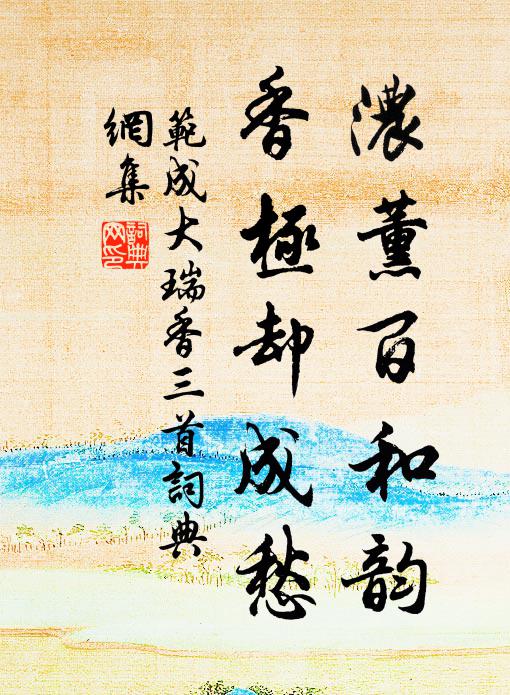 濃薰百和韵
香極却成愁
範成大瑞香三首詞典
網集
詞典
网印